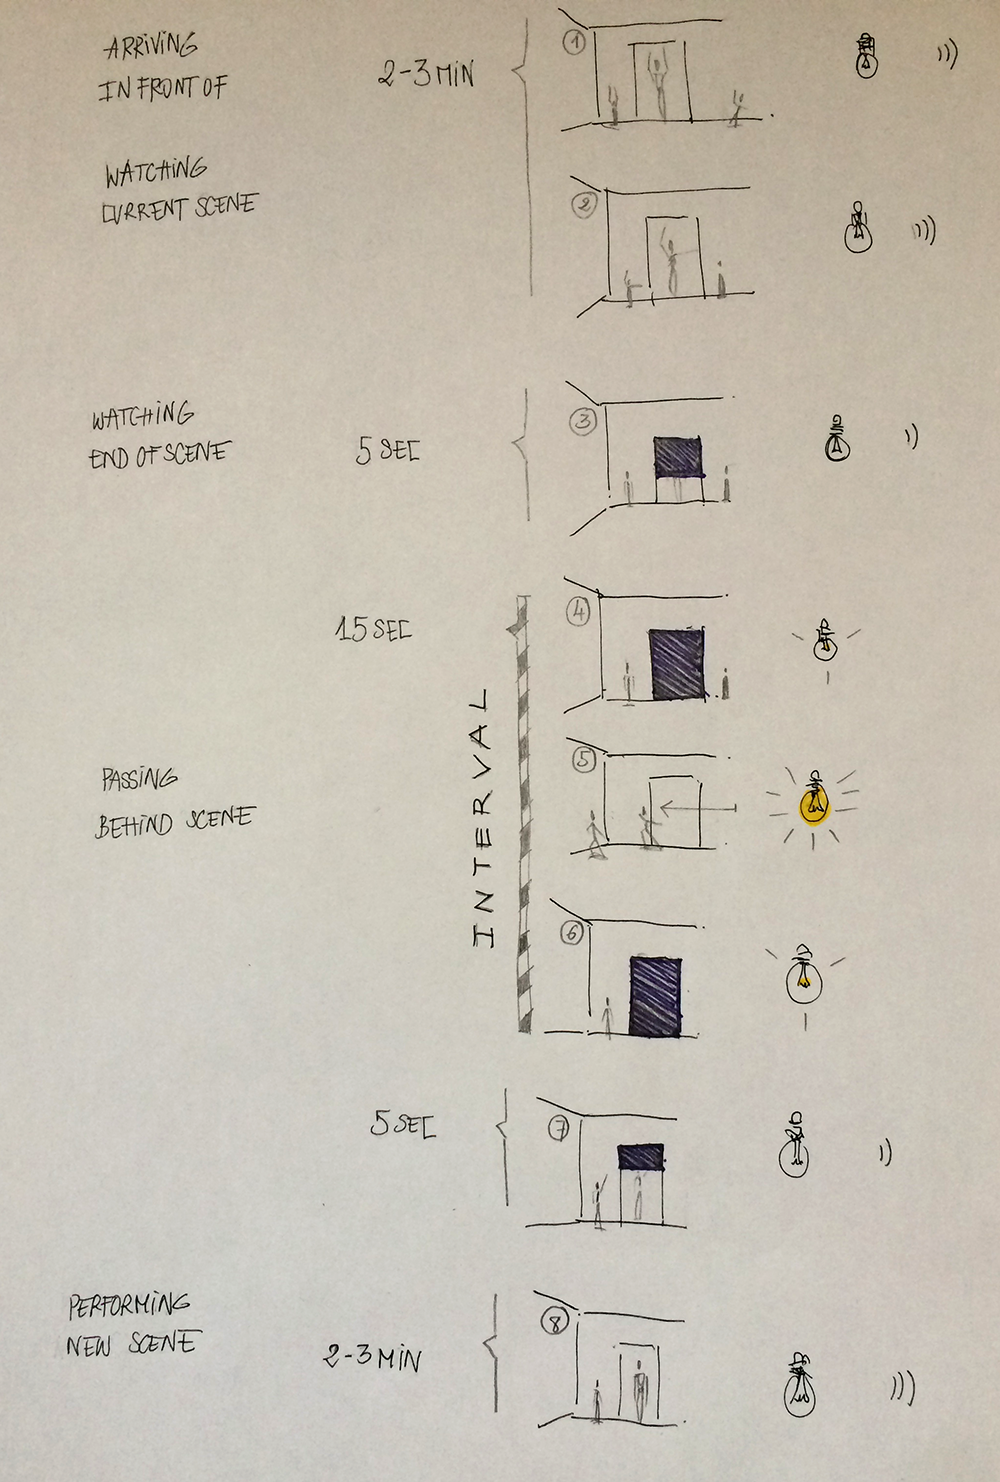 ARRIVING
IN FRONT OF
2-3 MIN
1
WATCHING
CURRENT SCENE
2
WATCHING
END OF SCENE
5 SEC
3
15 SEC
4
INTERVAL
PASSING
BEHIND SCENE
5
6
5 SEC
7
PERFORMING
NEW SCENE
2-3 MIN
8